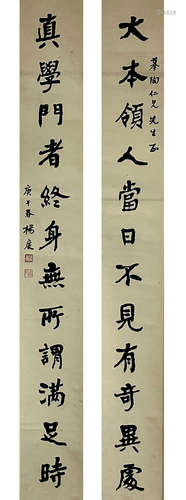 大本領人當日不見有奇異處
慕陶仁兄先生正
真學門者終身無所謂滿足時
庚午春楊度